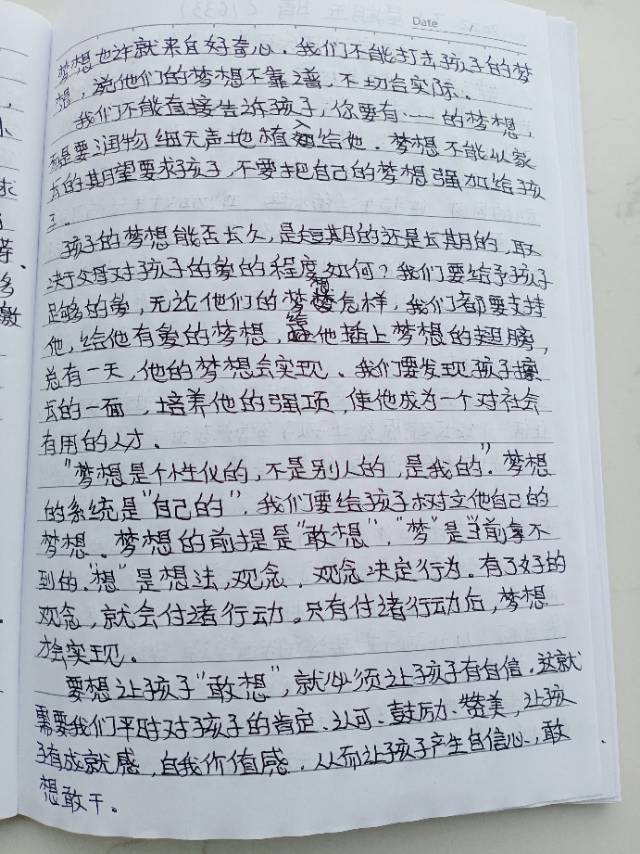 Date
梦想也许就来自好奇心。我们不能打击孩子的梦
想，说他们的梦想不靠谱，不切合实际。
我们不能直接告诉孩子，你要有……的梦想，
而是要润物细无声地植入给他。梦想不能以家
长的期望要求孩子，不要把自己的梦想强加给孩
子。
孩子的梦想能否长久，是短期的还是长期的，取
决于父母对孩子的爱的程度如何？我们要给予孩子
足够的爱，无论他们的梦想怎样，我们都要支持
他，给他有爱的梦想，给他插上梦想的翅膀，
总有一天，他的梦想会实现。我们要发现孩子擅
长的一面，培养他的强项，使他成为一个对社会
有用的人才。
"梦想是个性化的，不是别人的，是我的"。梦想
的系统是"自己的"。我们要给孩子树立他自己的
梦想。梦想的前提是"敢想"，"梦"是当前拿不
到的，"想"是想法，观念。观念决定行为。有了好的
观念，就会付诸行动。只有付诸行动后，梦想
才会实现。
要想让孩子"敢想"，就必须让孩子有自信。这就
需要我们平时对孩子的肯定、认可、鼓励、赞美，让孩
子有成就感，自我价值感，从而让孩子产生自信心，敢
想敢干。